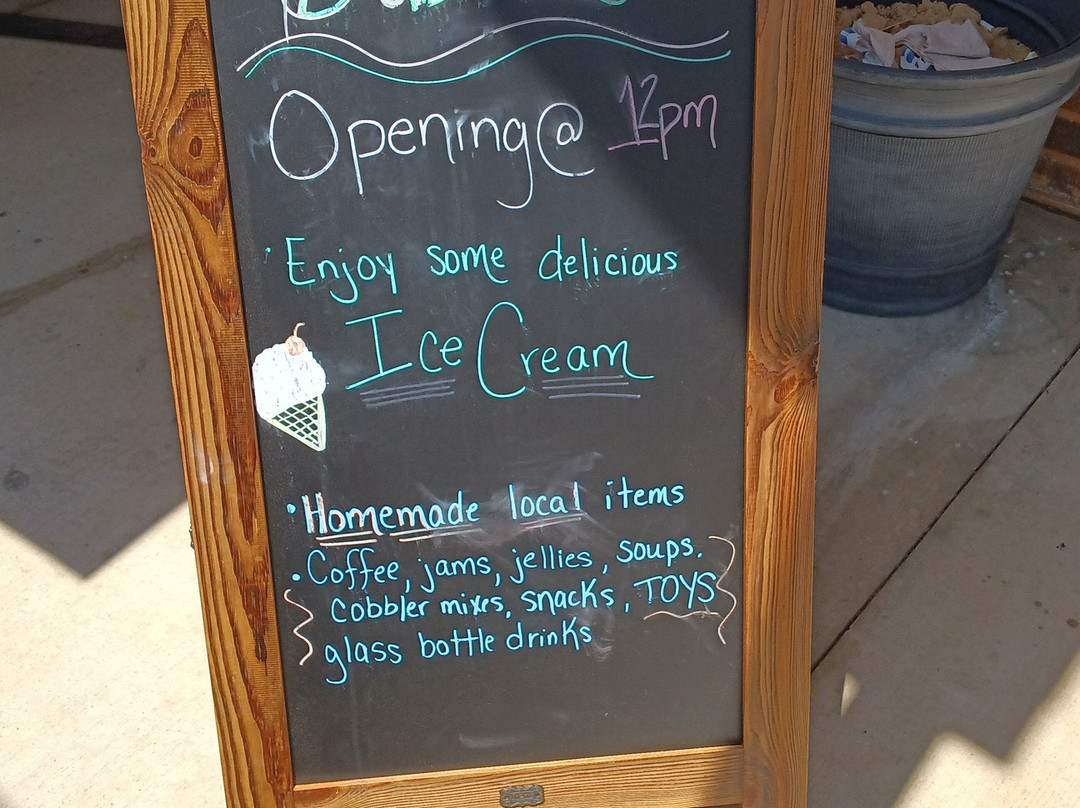 Opening@ 12pm
· Enjoy some delicious
Ice Cream
· Homemade local items
· Coffee, jams, jellies, soups.
cobbler mixes, snacks, TOYS
glass bottle drinks